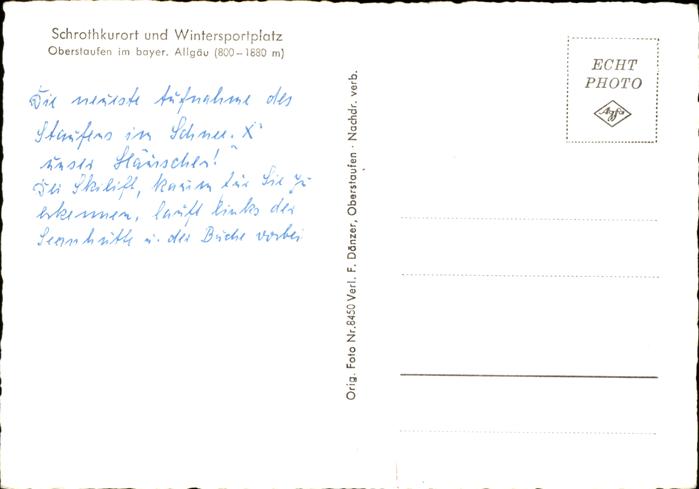 Schrothkurort und Wintersportplatz
Oberstaufen im bayer. Allgäu (800–1880 m)
Die neueste Aufnahme des
Staufens im Schnee. X
unser Häuschen!
Der Skilift, kaum für Sie zu
erkennen, läuft links der
u. der Buche vorbei
Orig. Foto Nr.8450 Verl. F. Dänzer, Oberstaufen · Nachdr. verb.
ECHT
PHOTO
Agfa